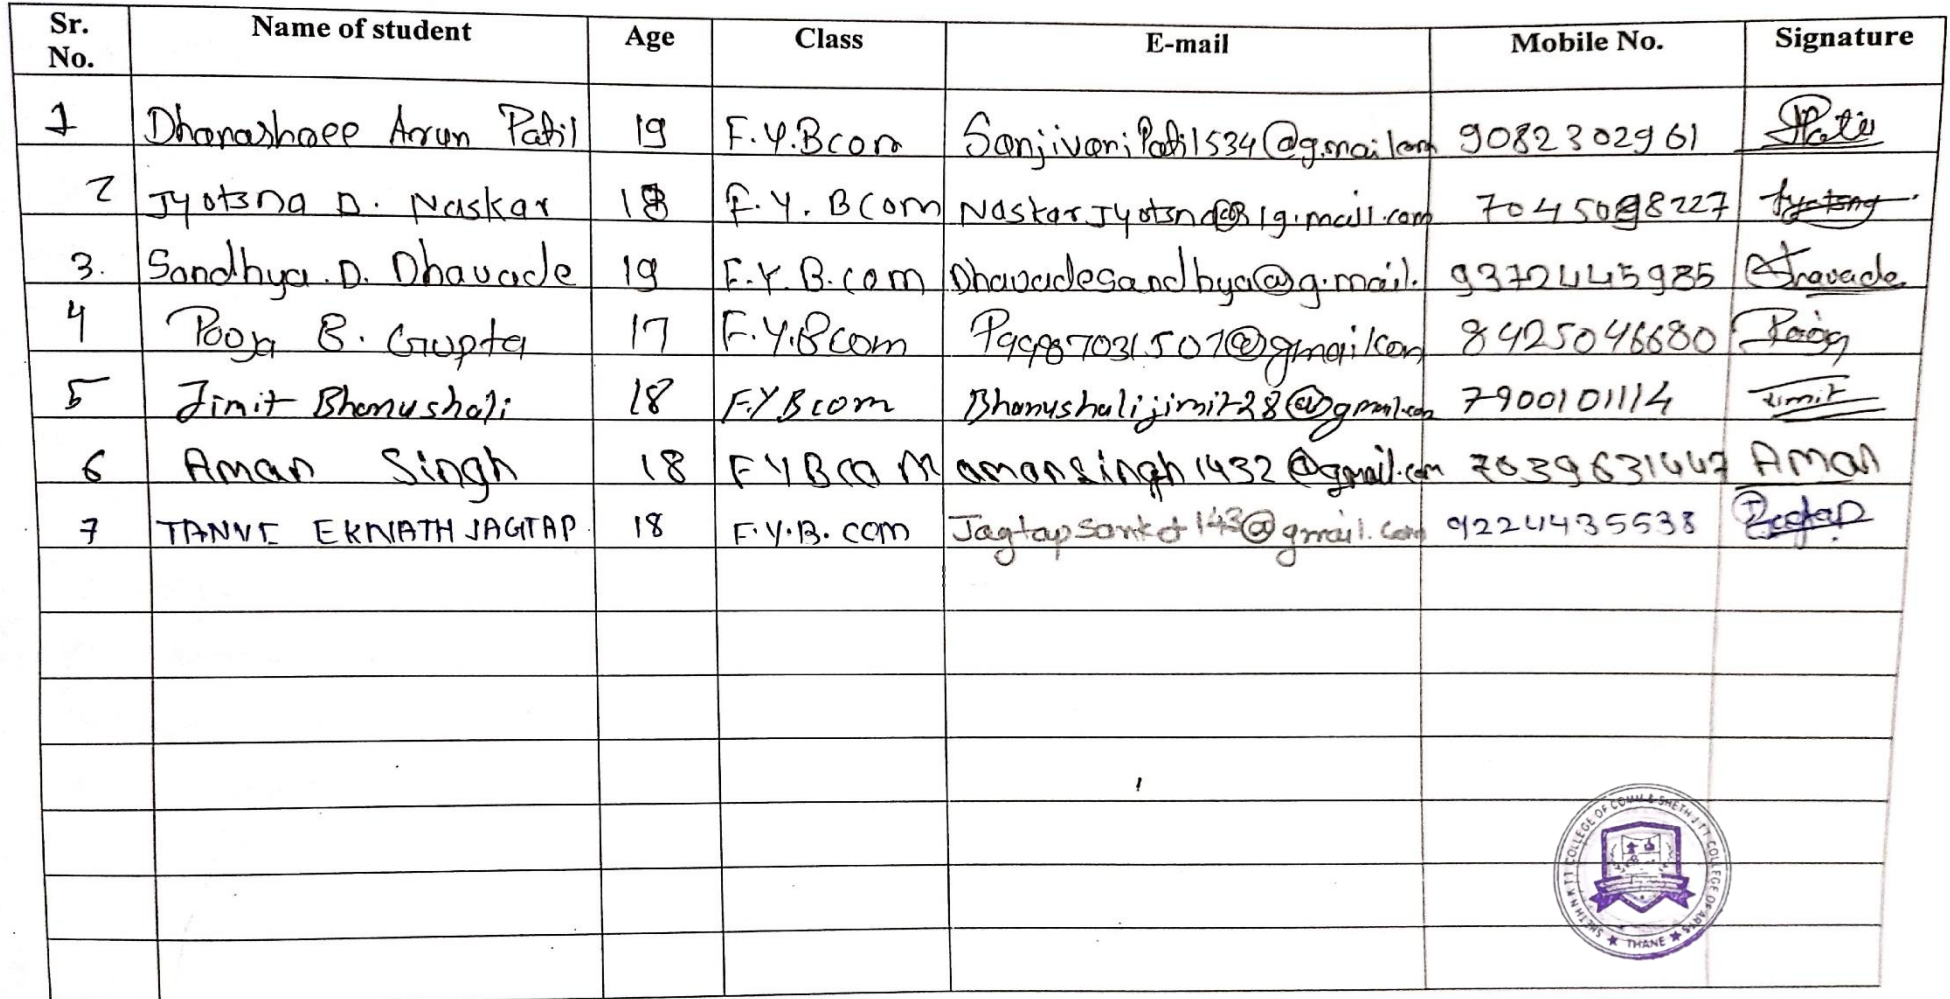 Sr. No. Name of student Age Class E-mail Mobile No. Signature
1 Dhanashree Arun Patil 19 F.Y.Bcom SanjivaniPatil534@g.mailcom 9082302961 Patil
2 Jyotsna D. Naskar 18 F.Y. BCom 7045098227 Jyotsna
3. Sandhya.D. Dhavade 19 F.Y.B.com Dhavadesandhya@g.mail. 9372445985 Dhavade
4 Pooja B. Gupta 17 F.Y.Bcom P99987031507@gmailcom 8425046680 Pooja
5 Jimit Bhanushali 18 F.Y Bcom Bhanushalijimit28@gmail.com 7900101114 Jimit
6 Aman Singh 18 FYBCOM amansingh1432@gmail.com Aman
7 TANVI EKNATH JAGTAP 18 F.Y.B.com Jagtapsanket143@gmail.com 9224435538
SHETH N K T T COLLEGE OF COMM & SHETH J T T COLLEGE OF ARTS ★ THANE ★